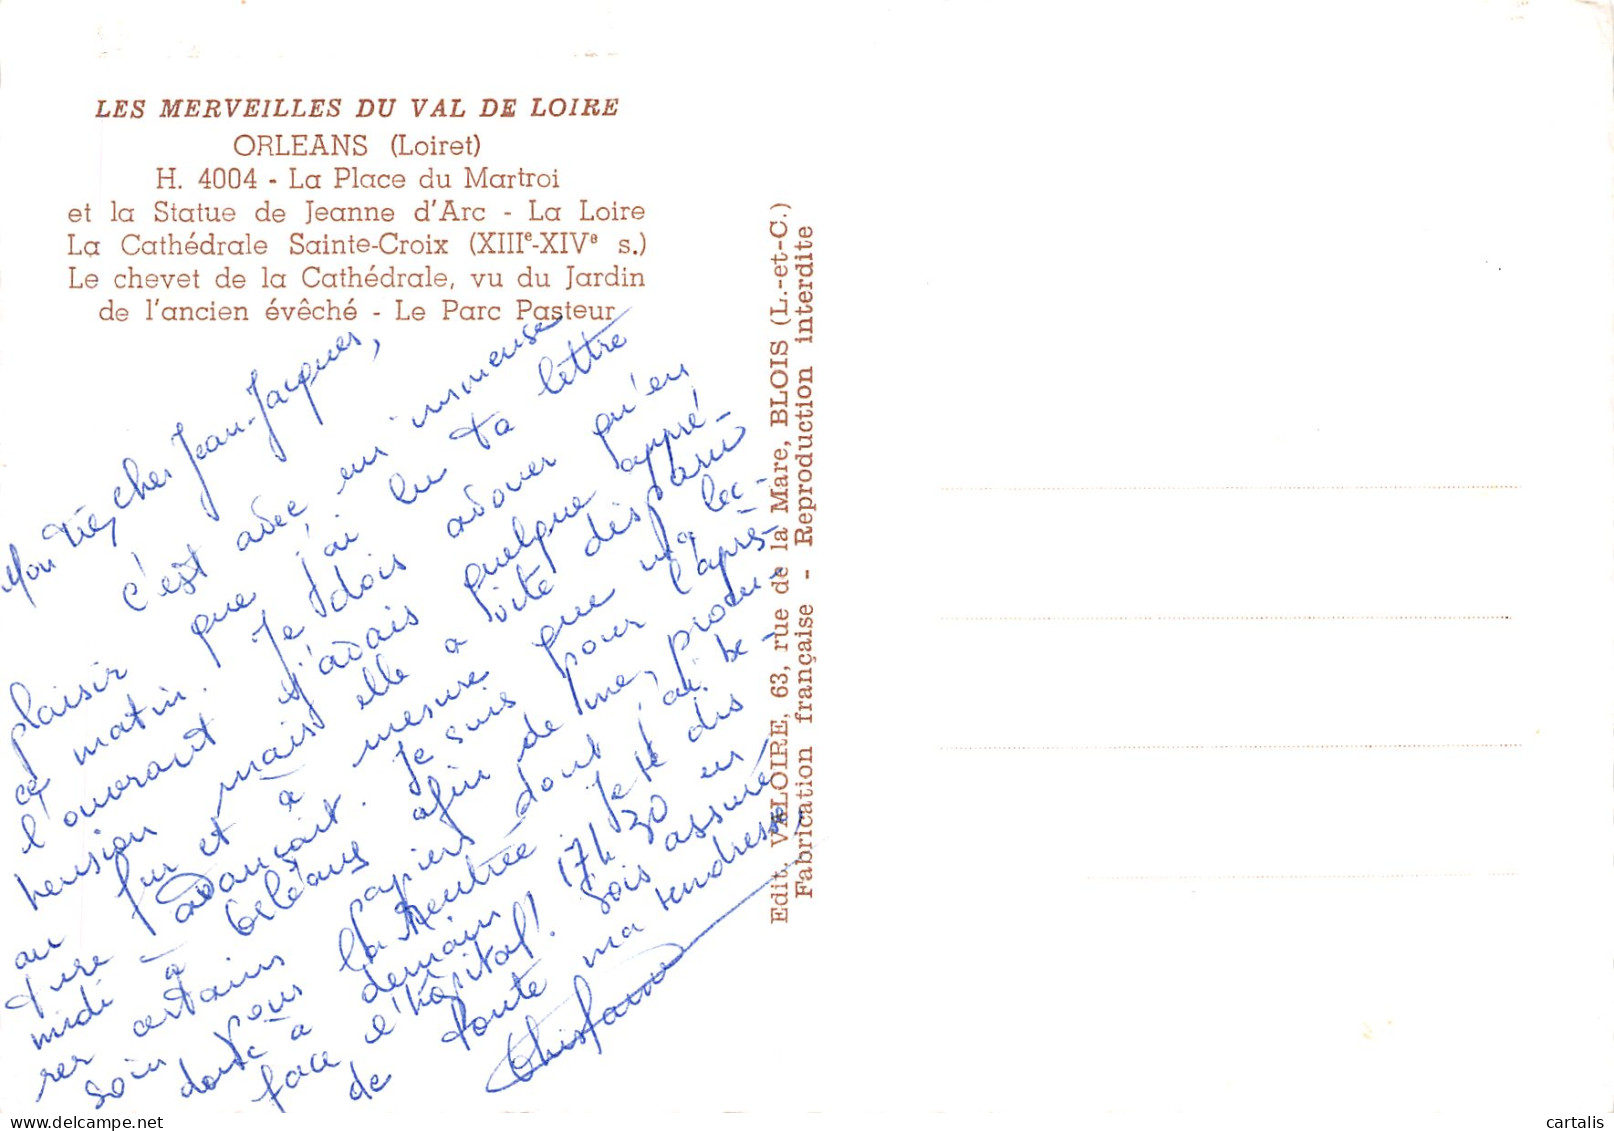 LES MERVEILLES DU VAL DE LOIRE
ORLEANS (Loiret)
H. 4004 - La Place du Martroi
et la Statue de Jeanne d'Arc - La Loire
La Cathédrale Sainte-Croix (XIIIe-XIVe s.)
Le chevet de la Cathédrale, vu du Jardin
de l'ancien évêché - Le Parc Pasteur
Mon très cher Jean-Jacques,
c'est avec un immense
plaisir que j'ai lu ta lettre
ce matin. Je dois avouer qu'en
l'ouvrant j'avais quelque appré-
hension mais elle a vite disparu
au fur et à mesure que ma lec-
ture avançait. Je suis pour l'après-
midi à Orléans afin de me procu-
rer certains papiers dont j'ai be-
soin pour la Rentrée. Je te dis
donc à demain 17h 30 en
face l'hôpital! Sois assuré
de toute ma tendresse
Edit. VALOIRE, 63, rue de la Mare, BLOIS (L.-et-C.)
Fabrication française - Reproduction interdite
cartalis